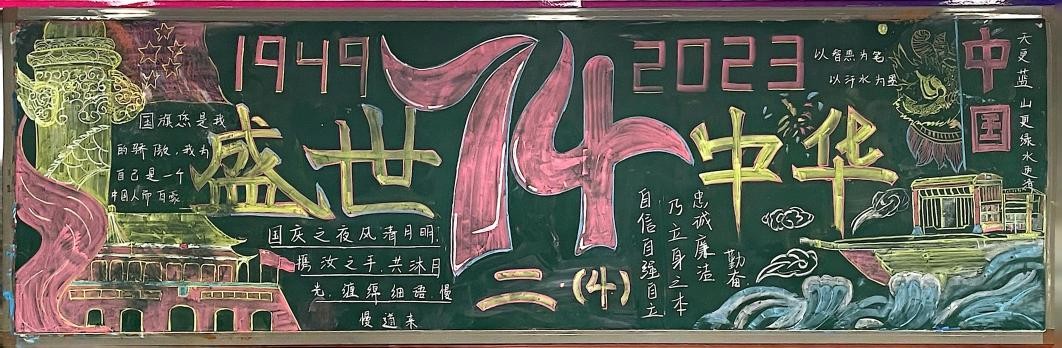 1949
74
2023
盛世
中华
国旗您是我
的骄傲,我为
自己是一个
中国人而自豪
国庆之夜风清月明
携汝之手,共沐月
光,缠绵细语,慢
慢道来
二.(4)
自信自强自立
乃立身之本
忠诚廉洁
勤奋
以智慧为笔
以汗水为墨
中国
天更蓝 山更绿水更清